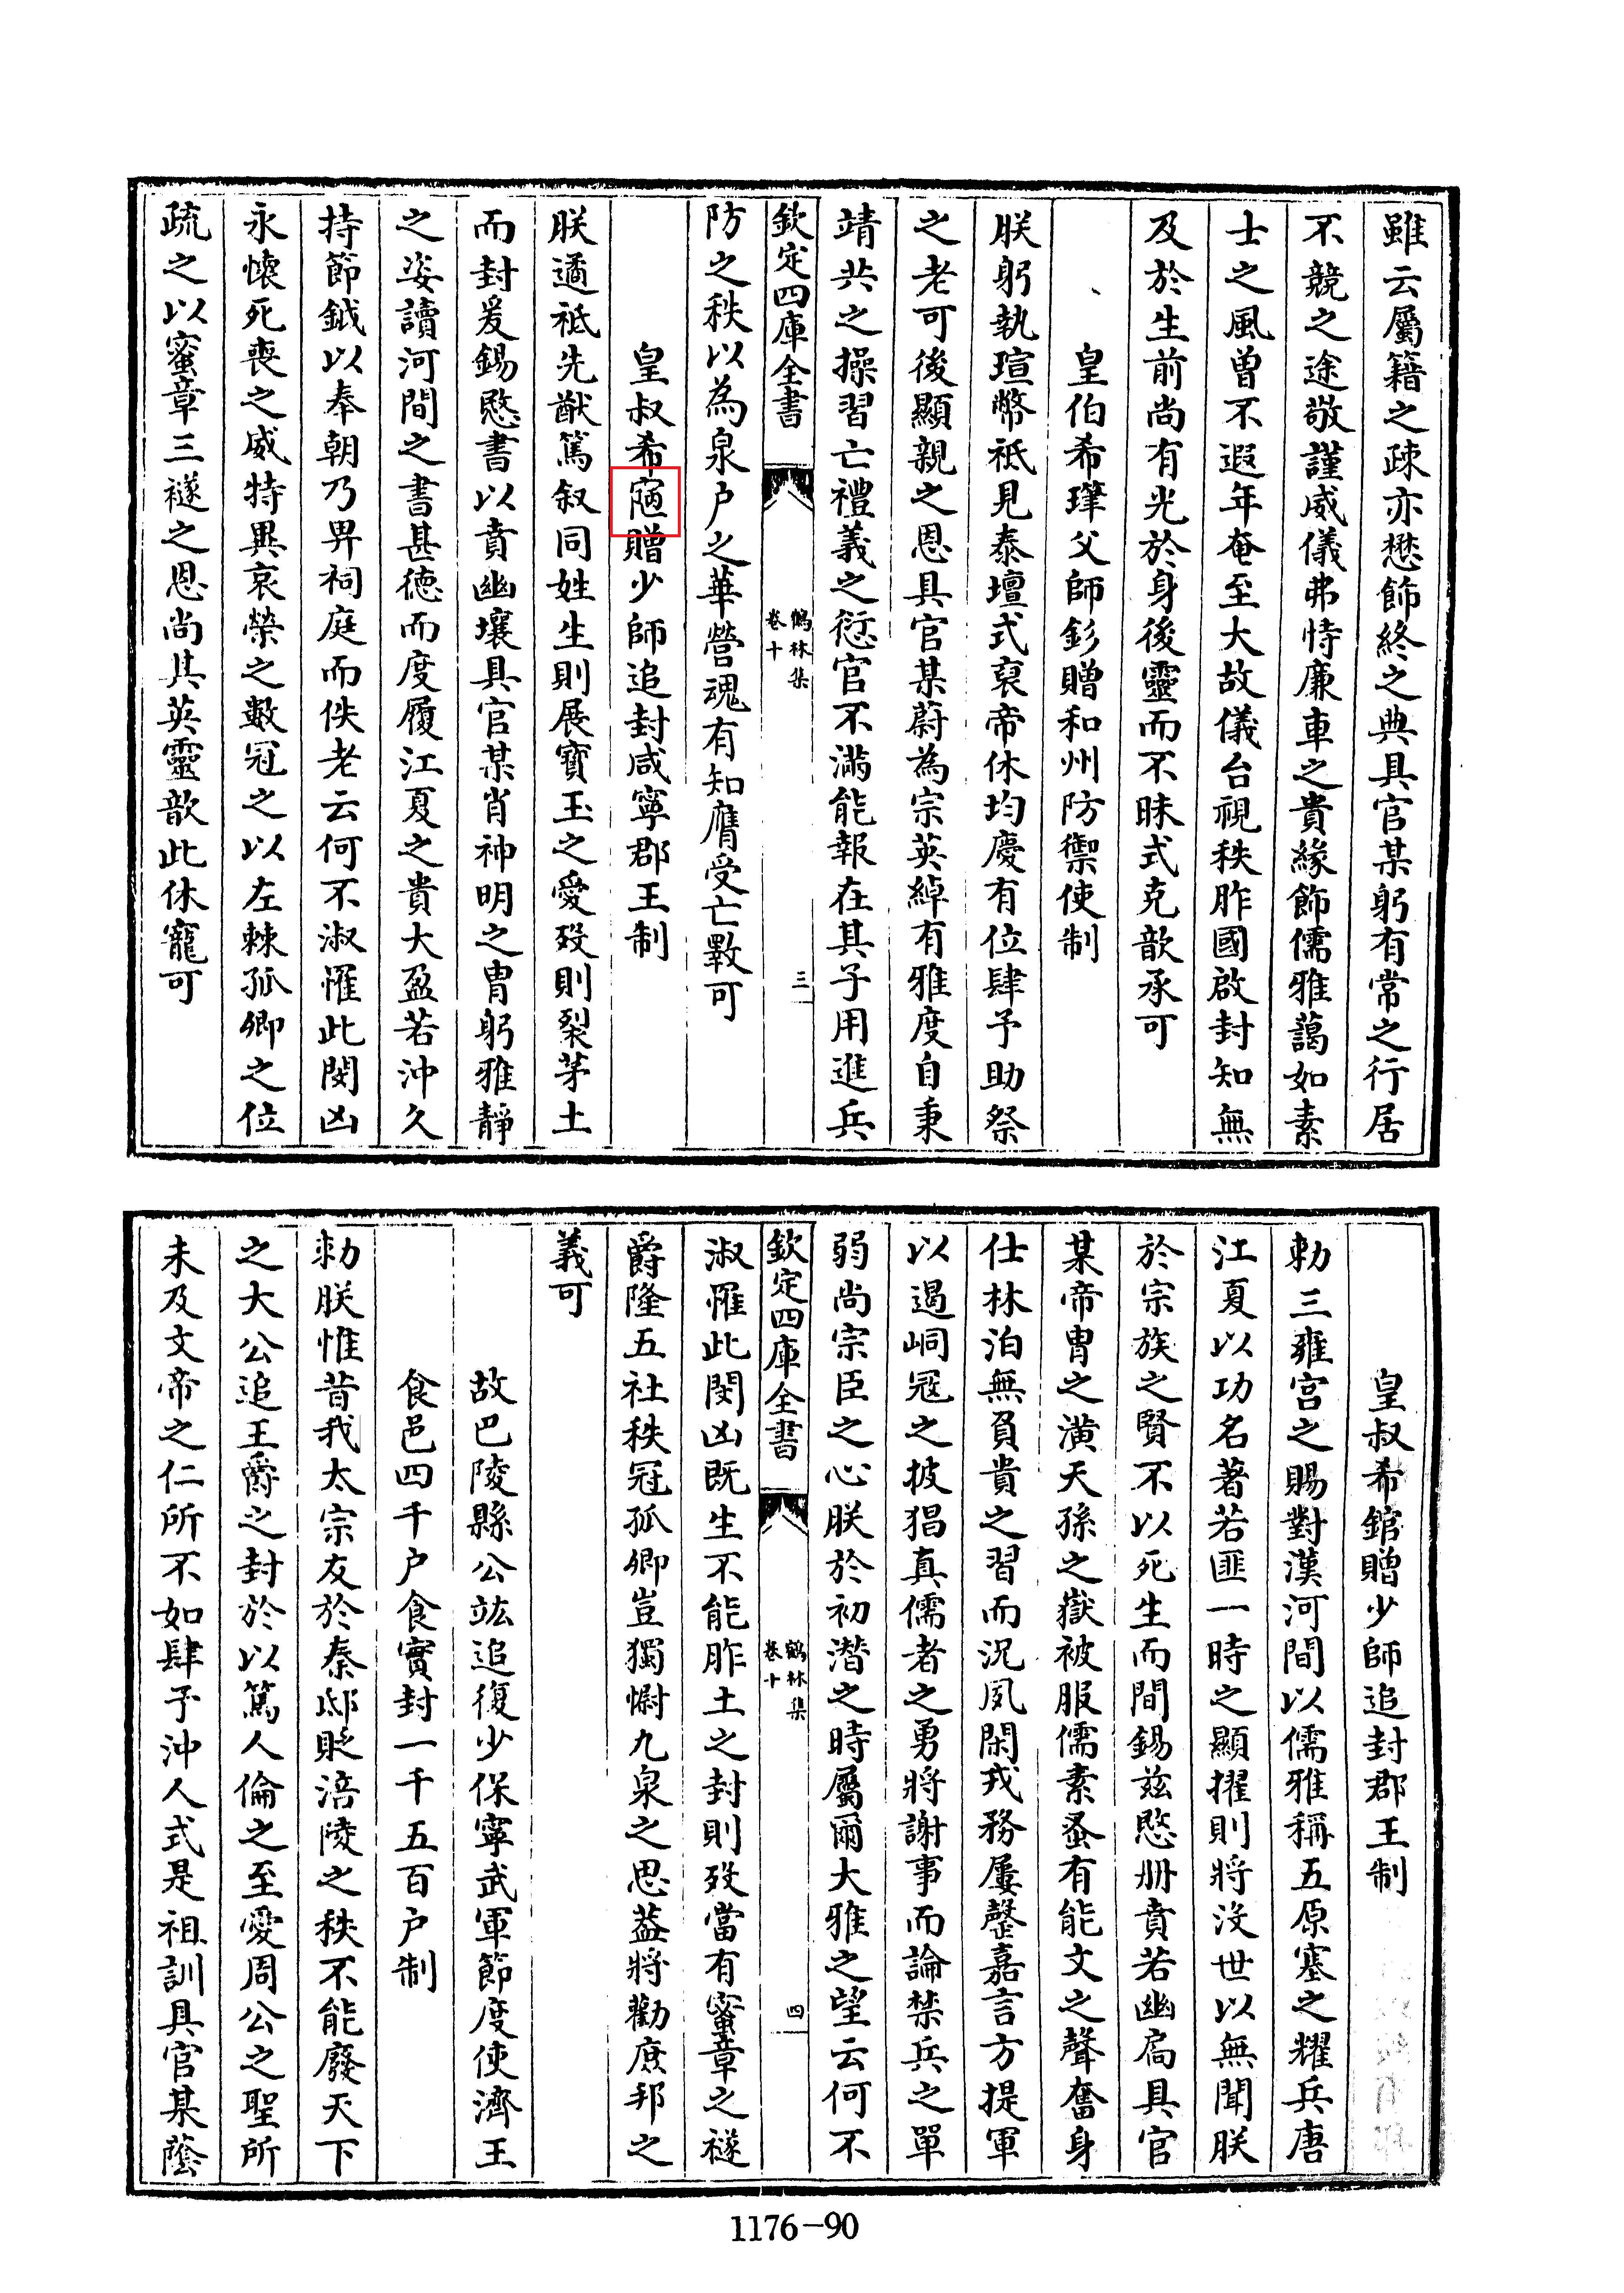 雖云屬籍之疎亦愁飾終之典具官某躬有常之行居
不競之途敬謹威儀弗恃廉車之貴緣飾儒雅藹如素
士之風曾不遐年奄至大故儀台視秩胙國啟封知無
及於生前尚有光於身後靈而不昧式克歆承可
皇伯希瑾父師釤贈和州防禦使制
朕躬執瑄幣祗見泰壇式裒帝休均慶有位肆予助祭
之老可後顯親之恩具官某蔚為宗英綽有雅度自秉
靖共之操習亡禮義之愆官不滿能報在其子用進兵
欽定四庫全書
鶴林集
卷十
三
防之秩以為泉户之華營魂有知膺受亡斁可
皇叔希贈少師追封咸寧郡王制
朕遹祗先猷篤叙同姓生則展寳玉之愛歿則裂茅土
而封爰錫愍書以賁幽壤具官某肖神明之胄躬雅靜
之姿讀河間之書甚徳而度履江夏之貴大盈若沖久
持節鉞以奉朝乃畀祠庭而佚老云何不淑罹此閔凶
永懷死喪之威特異哀榮之數冠之以左棘孤卿之位
疏之以蜜章三襚之恩尚其英靈歆此休寵可
皇叔希錧贈少師追封郡王制
勅三雍宫之賜對漢河間以儒雅稱五原塞之耀兵唐
江夏以功名著若匪一時之顯擢則將沒世以無聞朕
於宗族之賢不以死生而間錫兹愍册賁若幽扄具官
某帝胄之潢天孫之嶽被服儒素蚤有能文之聲奮身
仕林泊無負貴之習而況夙閑戎務屢罄嘉言方提軍
以遏峒冦之披猖真儒者之勇將謝事而論禁兵之單
弱尚宗臣之心朕於初潛之時屬爾大雅之望云何不
欽定四庫全書
鶴林集
卷十
四
淑罹此閔凶既生不能胙土之封則歿當有蜜章之襚
爵隆五社秩冠孤卿豈獨慰九泉之思葢將勸庶邦之
義可
故巴陵縣公竑追復少保寧武軍節度使濟王
食邑四千户食實封一千五百户制
勅朕惟昔我太宗友於秦邸貶涪陵之秩不能廢天下
之大公追王爵之封於以篤人倫之至愛周公之聖所
未及文帝之仁所不如肆予沖人式是祖訓具官某蔭